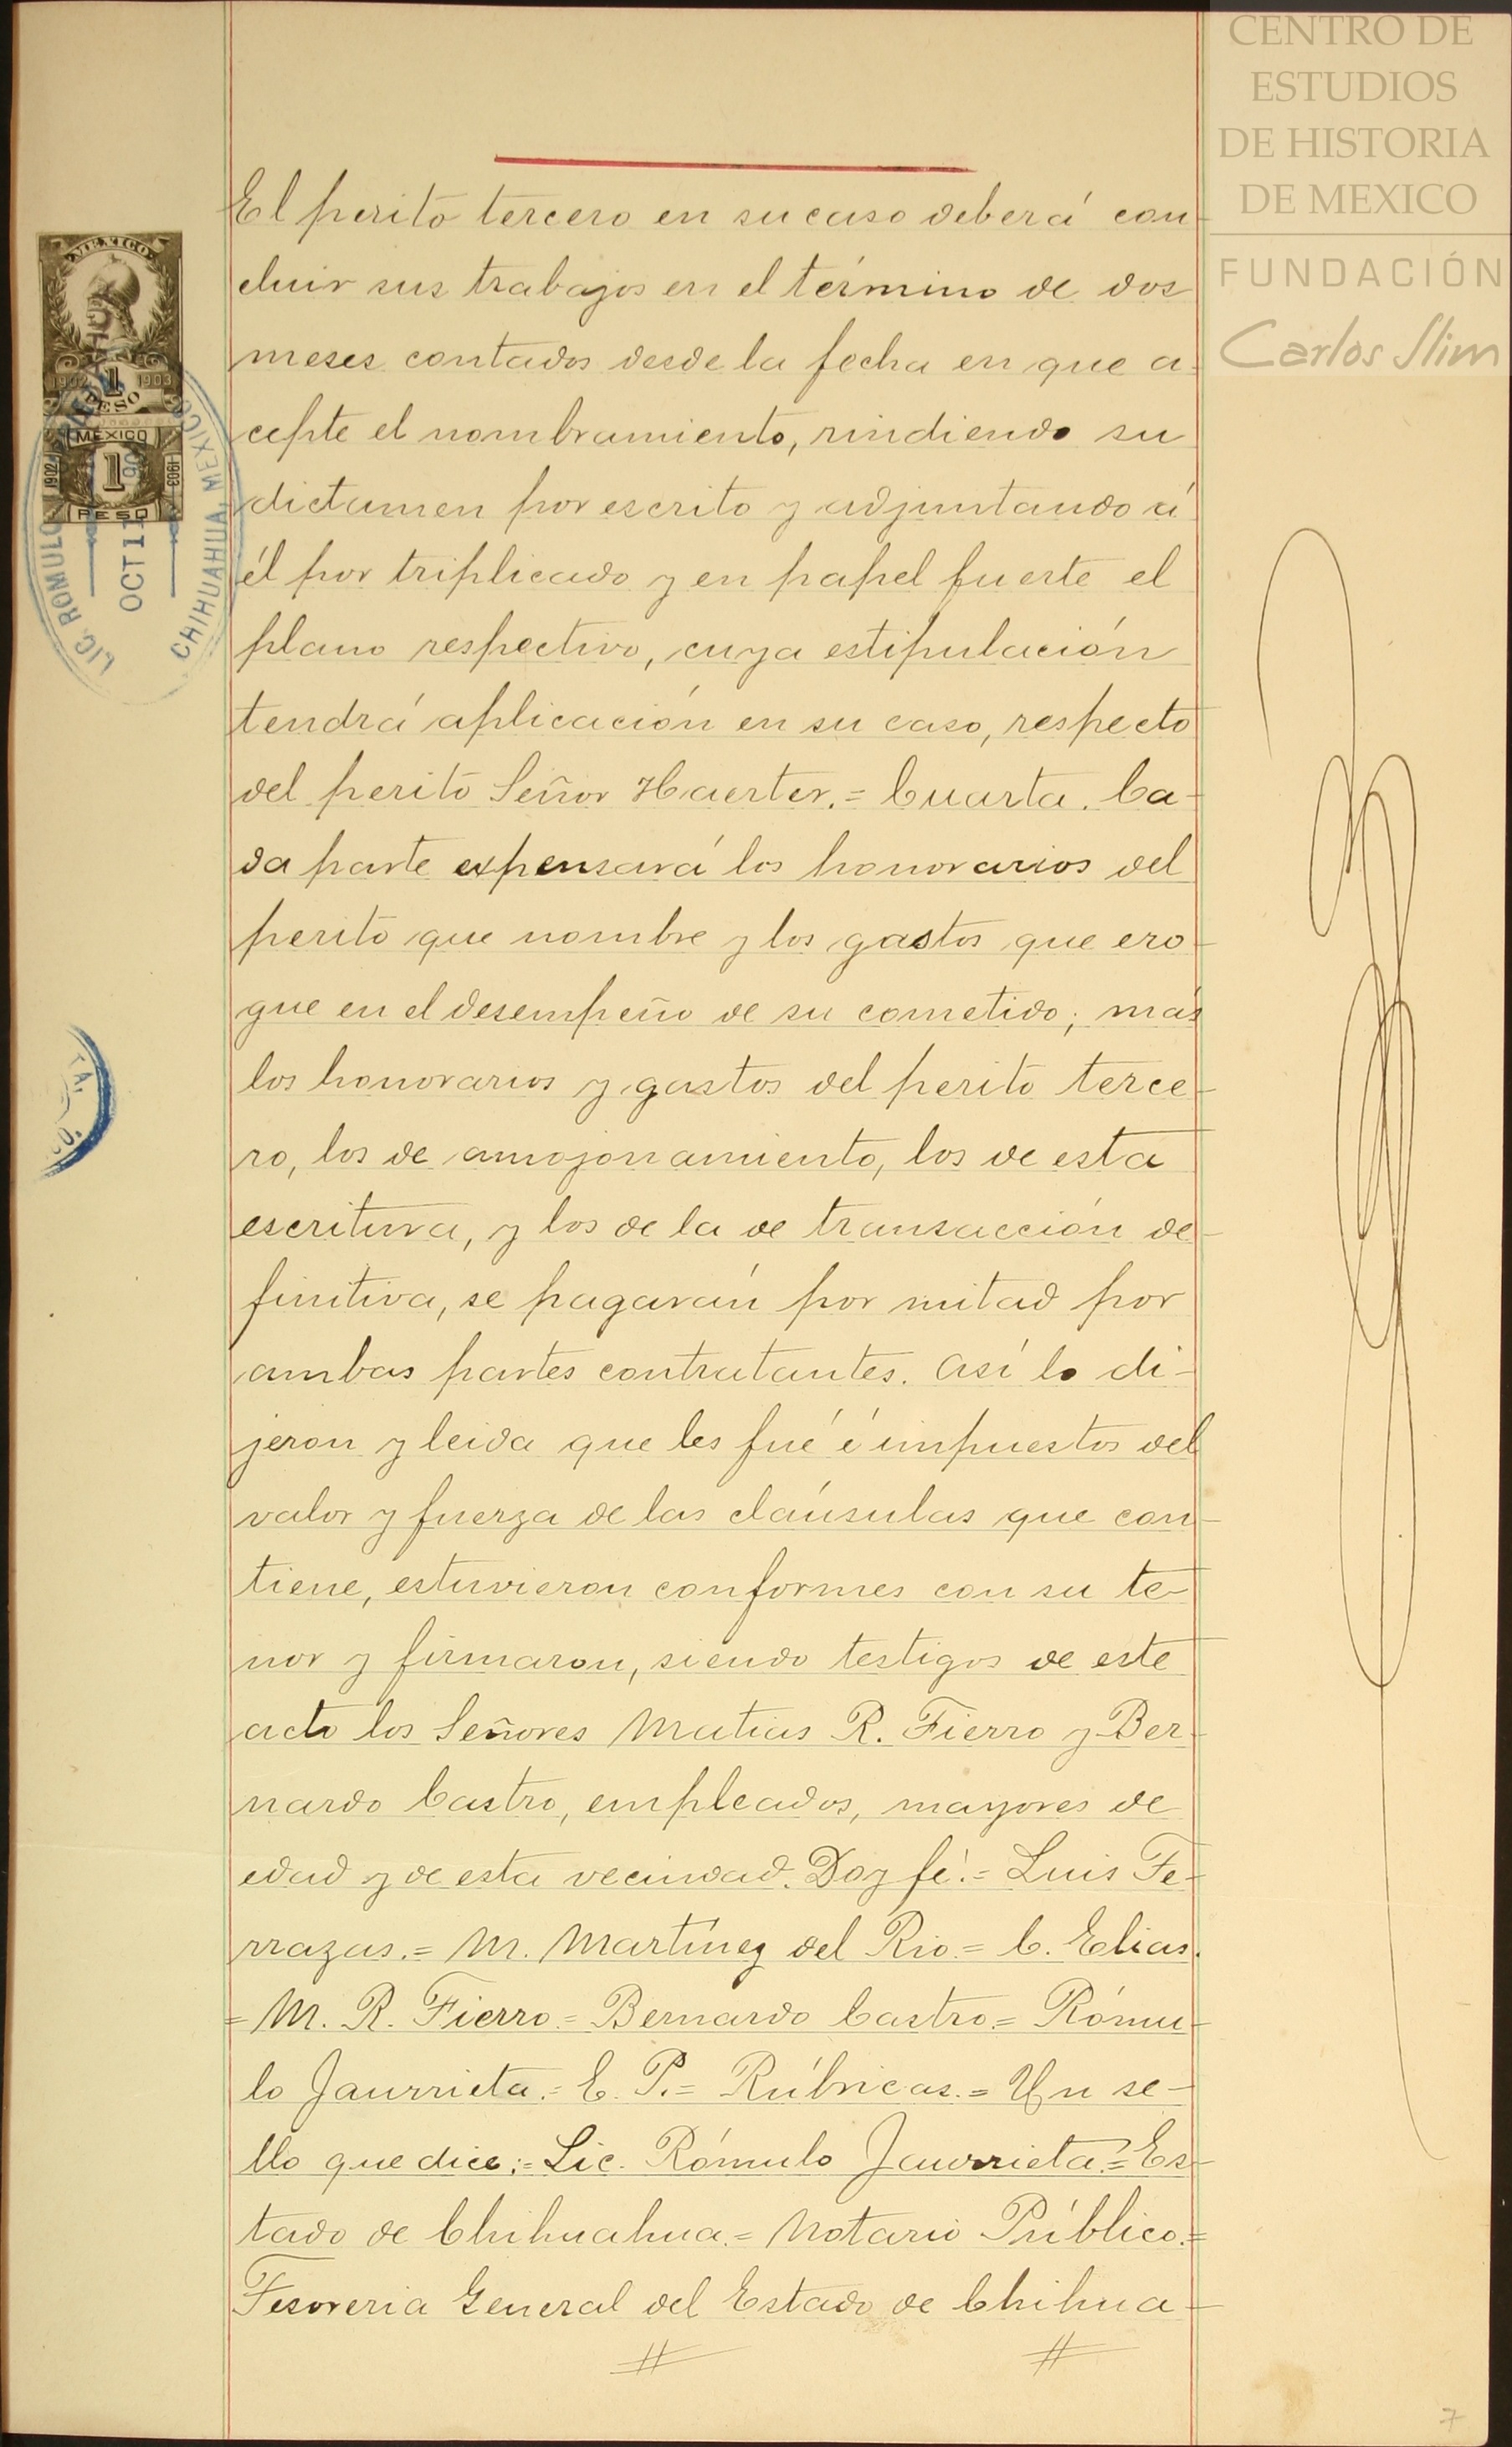 CENTRO DE
ESTUDIOS
DE HISTORIA
DE MEXICO
FUNDACIÓN
Carlos Slim
MEXICO
1902 1 1903
PESO
MEXICO
1902 1 1903
PESO
LIC. ROMULO
OCT 11
CHIHUAHUA, MEXICO
El perito tercero en su caso deberá con-
cluir sus trabajos en el término de dos
meses contados desde la fecha en que a-
cepte el nombramiento, rindiendo su
dictamen por escrito y adjuntando á
él por triplicado y en papel fuerte el
plano respectivo, cuya estipulación
tendrá aplicación en su caso, respecto
del perito Señor Haerter.= Cuarta. Ca-
da parte expensará los honorarios del
perito que nombre y los gastos que ero-
gue en el desempeño de su cometido; más
los honorarios y gastos del perito terce-
ro, los de amojonamiento, los de esta
escritura, y los de la de transacción de-
finitiva, se pagarán por mitad por
ambas partes contratantes. Así lo di-
jeron y leida que les fué é impuestos del
valor y fuerza de las cláusulas que con-
tiene, estuvieron conformes con su te-
nor y firmaron, siendo testigos de este
acto los Señores Matias R. Fierro y Ber-
nardo Castro, empleados, mayores de
edad y de esta vecindad. Doy fé.= Luis Te-
rrazas.= M. Martínez del Rio.= C. Elias.
= M. R. Fierro.= Bernardo Castro.= Rómu-
lo Jaurrieta.= E. P.= Rúbricas.= Un se-
llo que dice:= Lic. Rómulo Jaurrieta.= Es-
tado de Chihuahua.= Notario Público.=
Tesoreria General del Estado de Chihua-
7